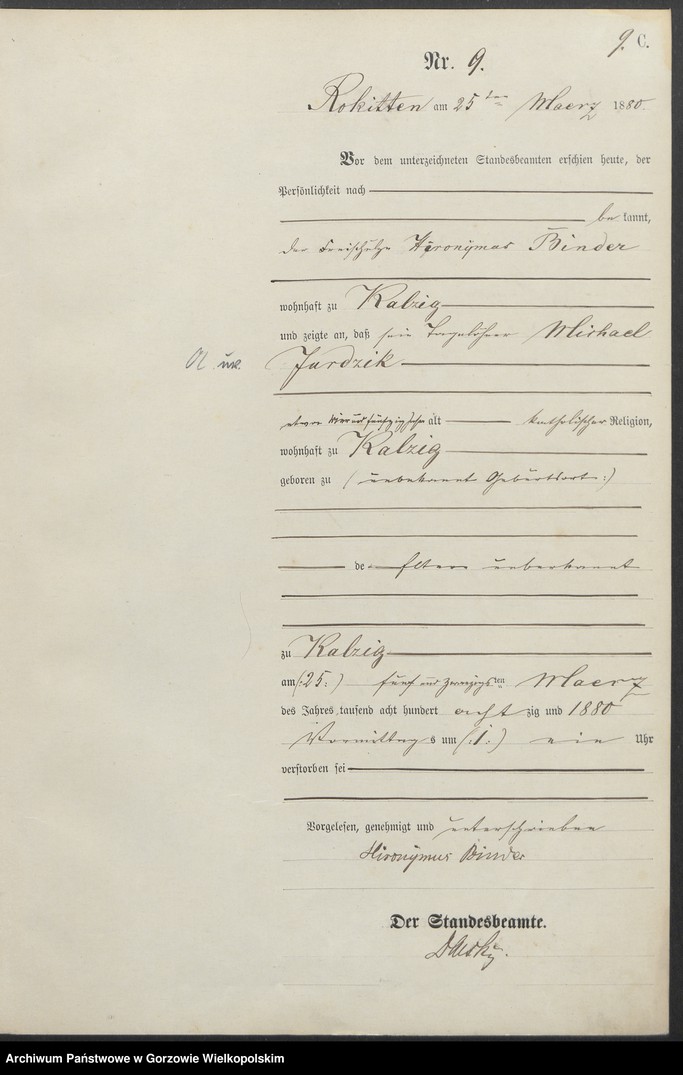 9. C.
Nr. 9.
Rokitten am 25 ten Maerz 1880.
Vor dem unterzeichneten Standesbeamten erschien heute, der
Persönlichkeit nach
be kannt,
der Freischulze Hyeronymus Binder
wohnhaft zu Kalzig
und zeigte an, daß sein Tagelöhner Michael
Jardzik
etwa vier und fünfzig Jahr alt katholischer Religion,
wohnhaft zu Kalzig
geboren zu (unbekannt Geburtsort:)
de Eltern unbekannt
zu Kalzig
am (:25:) fünf und zwanzigsten Maerz
des Jahres tausend acht hundert acht zig und 1880
Vormittag s um (:1:) ein Uhr
verstorben sei
Vorgelesen, genehmigt und unterschrieben
Hironÿmus Binder
Der Standesbeamte.
Archiwum Państwowe w Gorzowie Wielkopolskim